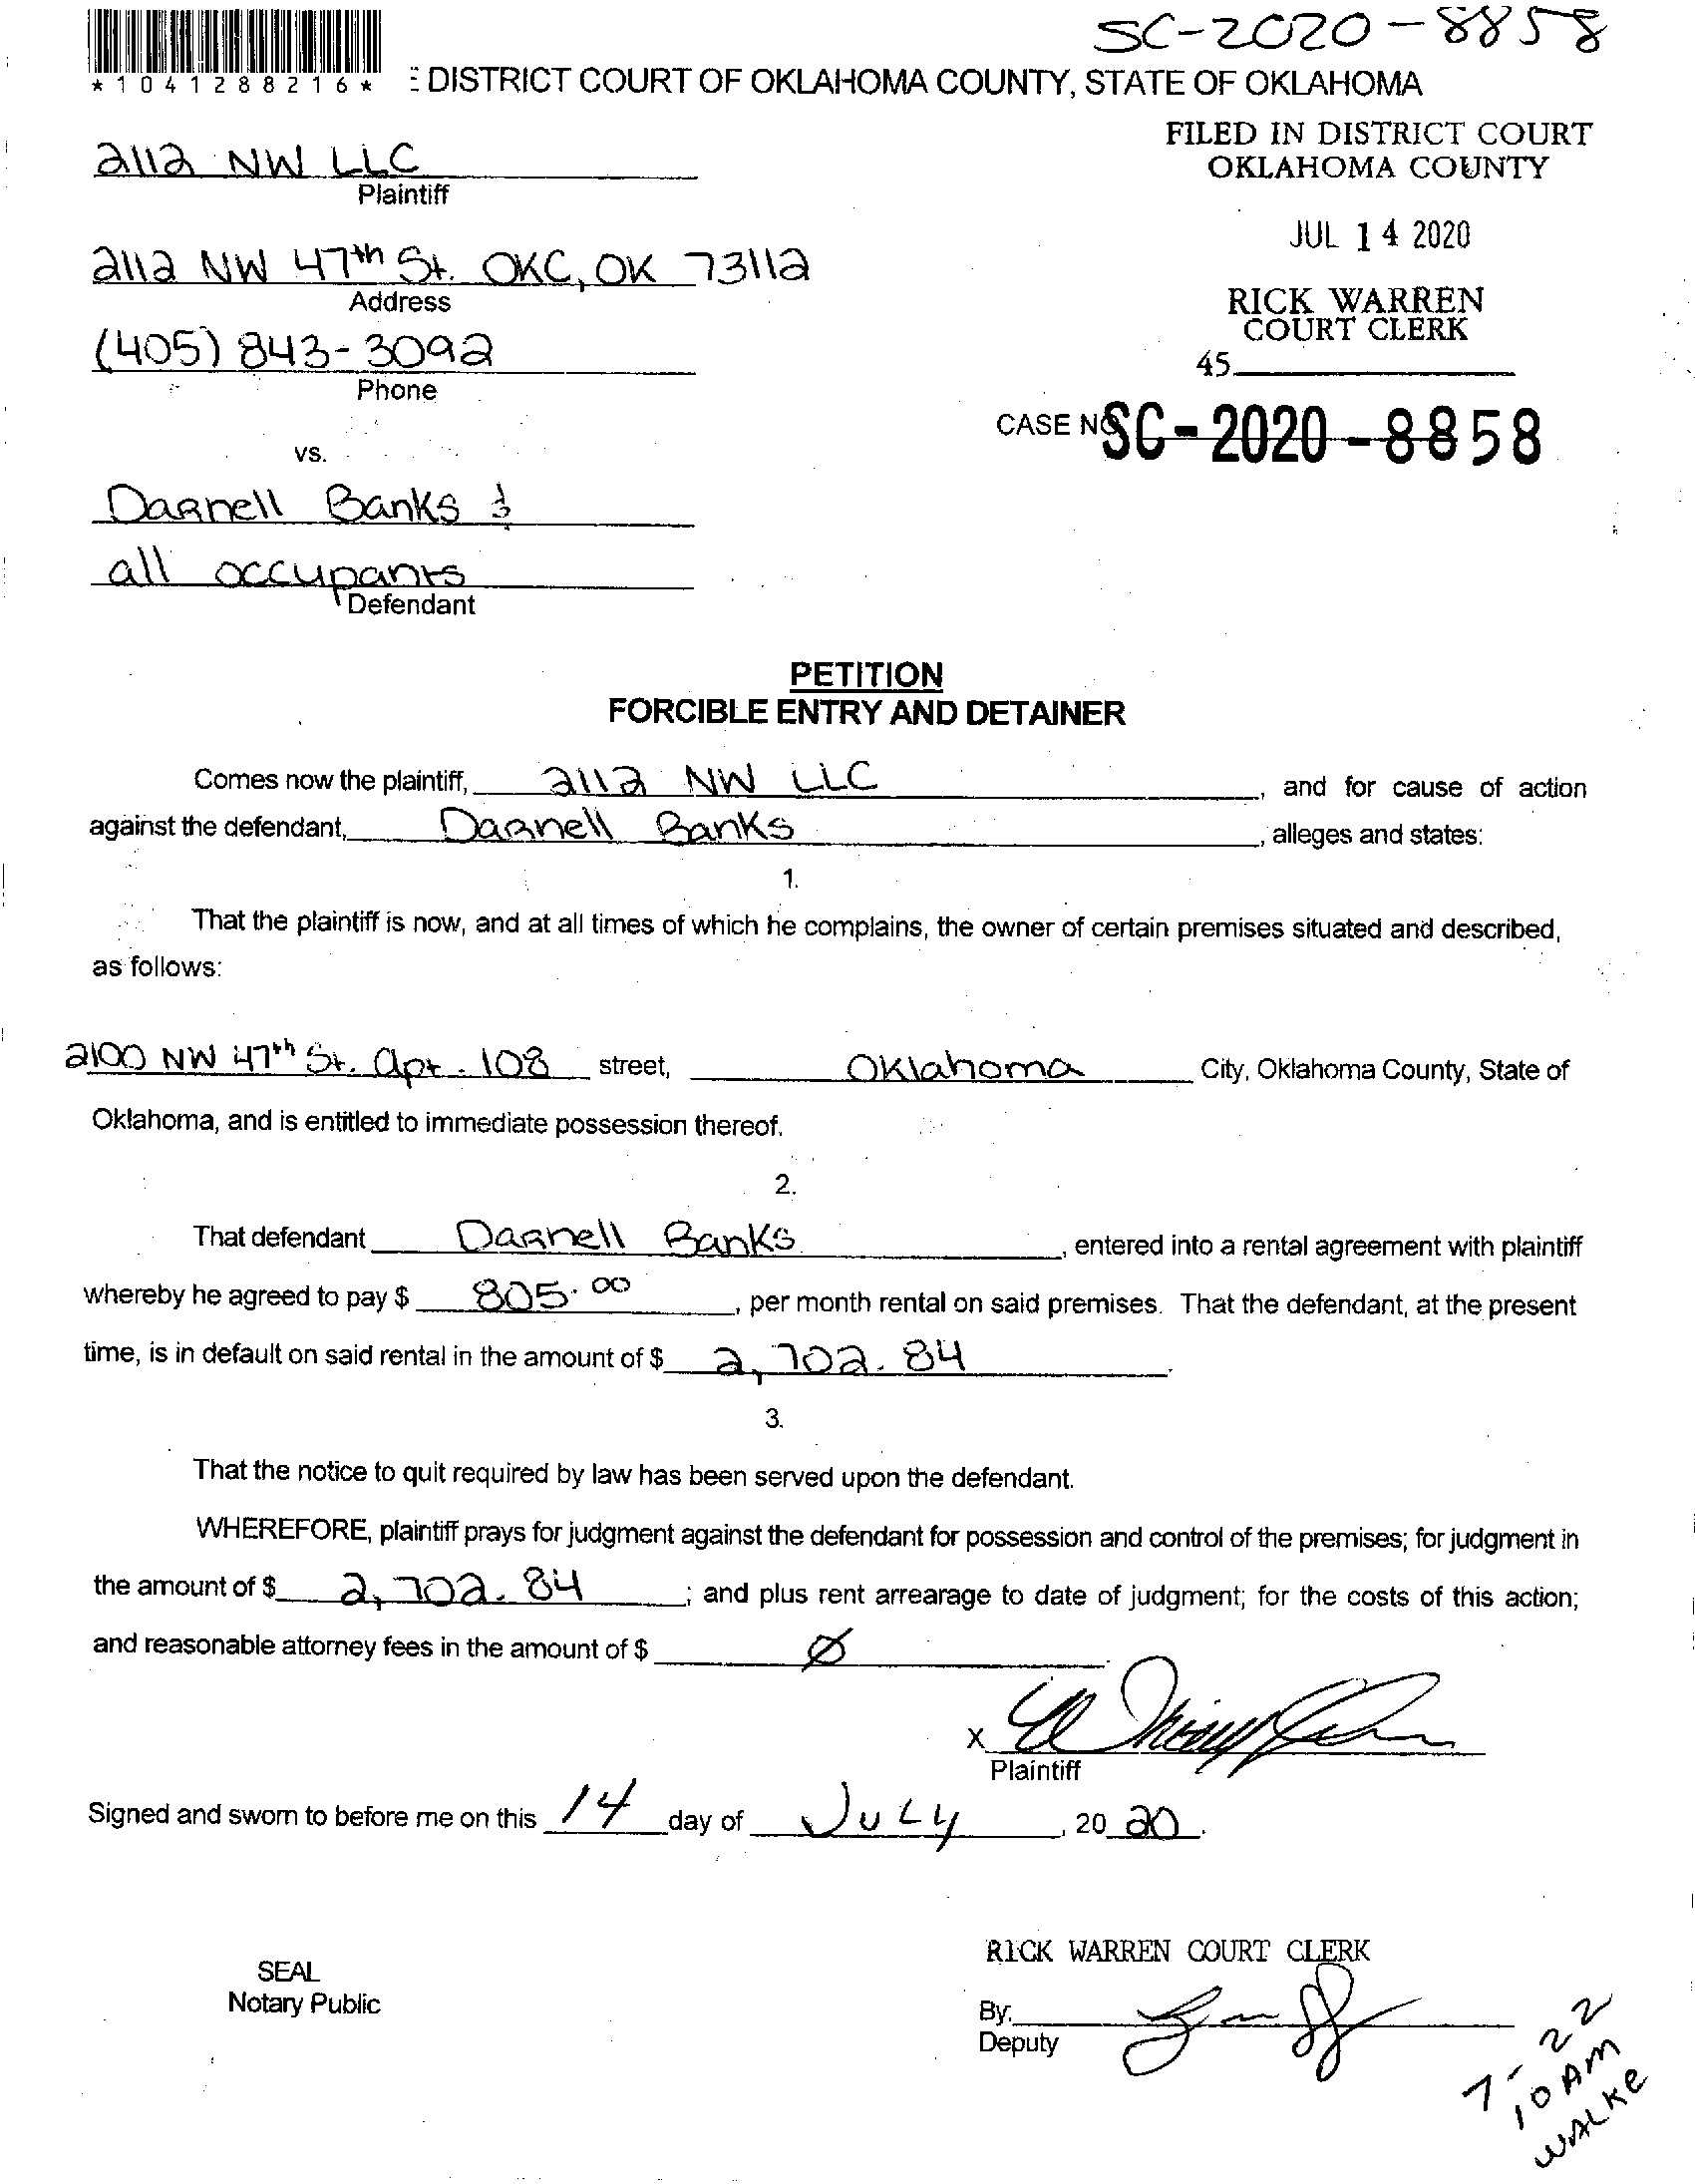 SC-2020-8858
*1041288216*
DISTRICT COURT OF OKLAHOMA COUNTY, STATE OF OKLAHOMA
FILED IN DISTRICT COURT
OKLAHOMA COUNTY
2112 NW LLC
Plaintiff
JUL 14 2020
2112 NW 47th St. OKC, OK 73112
Address
RICK WARREN
COURT CLERK
(405) 843-3092
45
Phone
CASE NO. SC-2020-8858
vs.
Darnell Banks &
all occupants
Defendant
PETITION
FORCIBLE ENTRY AND DETAINER
Comes now the plaintiff, 2112 NW LLC, and for cause of action
against the defendant, Darnell Banks, alleges and states:
1.
That the plaintiff is now, and at all times of which he complains, the owner of certain premises situated and described,
as follows:
2100 NW 47th St. apt. 108 street, Oklahoma City, Oklahoma County, State of
Oklahoma, and is entitled to immediate possession thereof.
2.
That defendant Darnell Banks, entered into a rental agreement with plaintiff
whereby he agreed to pay $ 805.00, per month rental on said premises. That the defendant, at the present
time, is in default on said rental in the amount of $ 2,702.84.
3.
That the notice to quit required by law has been served upon the defendant.
WHEREFORE, plaintiff prays for judgment against the defendant for possession and control of the premises; for judgment in
the amount of $ 2,702.84; and plus rent arrearage to date of judgment; for the costs of this action;
and reasonable attorney fees in the amount of $ Ø.
X
Plaintiff
Signed and sworn to before me on this 14 day of JULY, 2020.
RICK WARREN COURT CLERK
SEAL
Notary Public
By:
Deputy
7-22
10 AM
WALKE